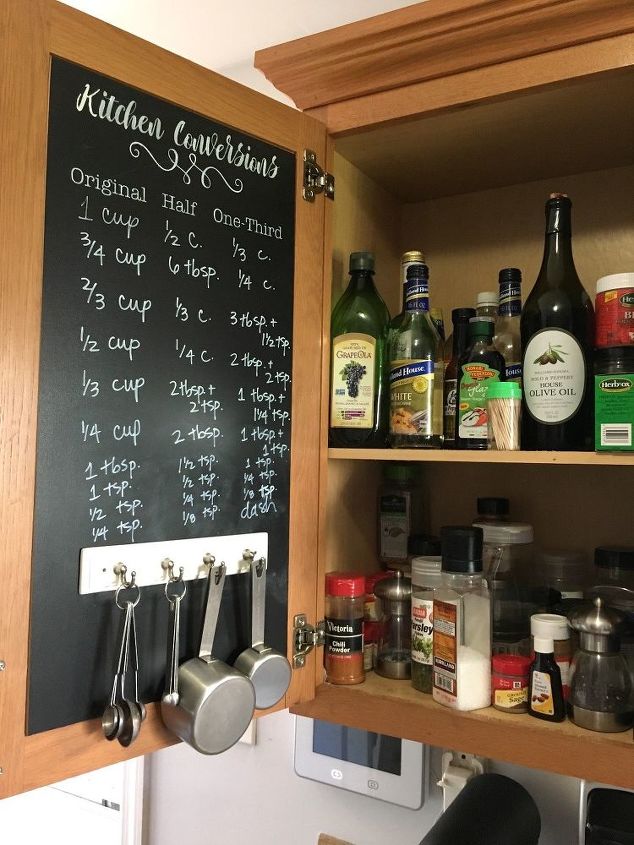 Kitchen Conversions
Original Half One-Third
1 cup 1/2 c. 1/3 c.
3/4 cup 6 tbsp. 1/4 c.
2/3 cup 1/3 c. 3 tbsp. + 1 1/2 tsp.
1/2 cup 1/4 c. 2 tbsp. + 2 tsp.
1/3 cup 2 tbsp. + 2 tsp. 1 tbsp. + 1 1/4 tsp.
1/4 cup 2 tbsp. 1 tbsp. + 1 tsp.
1 tbsp. 1 1/2 tsp. 1 tsp.
1 tsp. 1/2 tsp. 1/4 tsp.
1/2 tsp. 1/4 tsp. 1/8 tsp.
1/4 tsp. 1/8 tsp. dash
GRAPEOLA
Holland House
WHITE
HOUSE
OLIVE OIL
Herbox
Victoria
Chili
Powder
Parsley
KIRKLAND
Sage